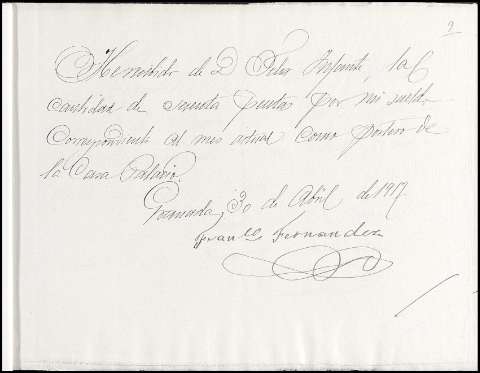 9
He recibido de D Felix Infante, la
cantidad de sesenta pesetas por mi sueldo
Correspondiente al mes actual como portero de
la Casa Palacio.
Granada, 30 de Abril de 1917.
Franco Fernandez